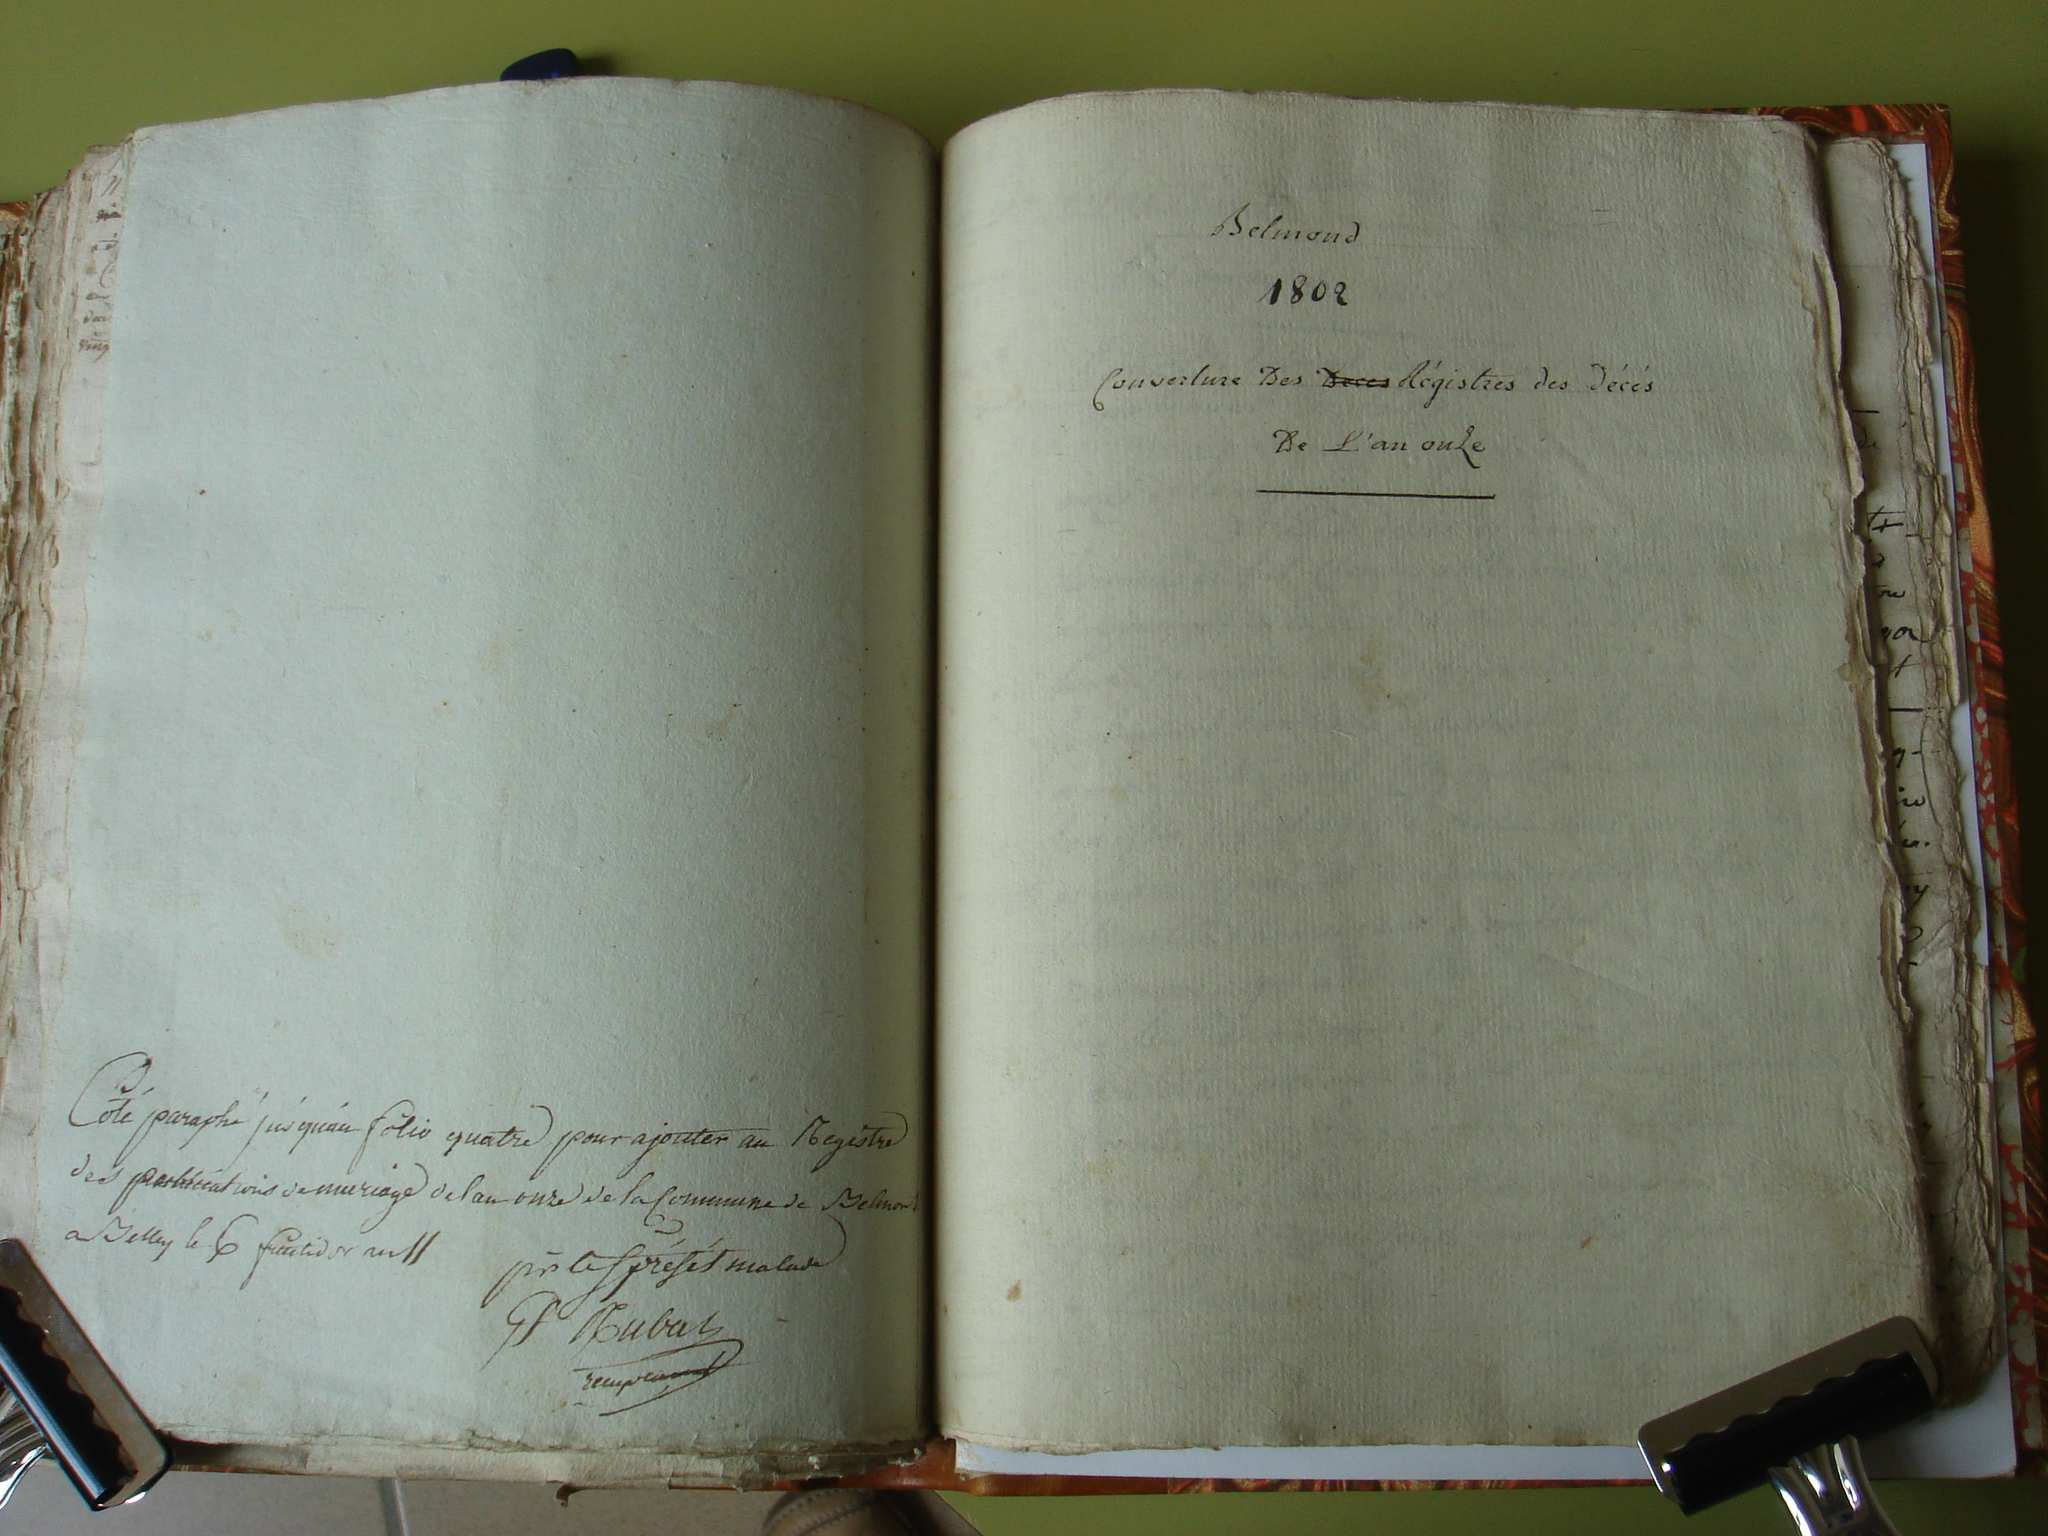 Coté paraphé jusquau folio quatre pour ajouter au Registre
des publications de mariage de lan onze de la Commune de Belmont
a Belley le 6 fructidor an 11
pr le s préfét malade
P Rubat
remplacant
Belmond
1802
Couverture Des Deces Régistres des Décés
De L'an onze